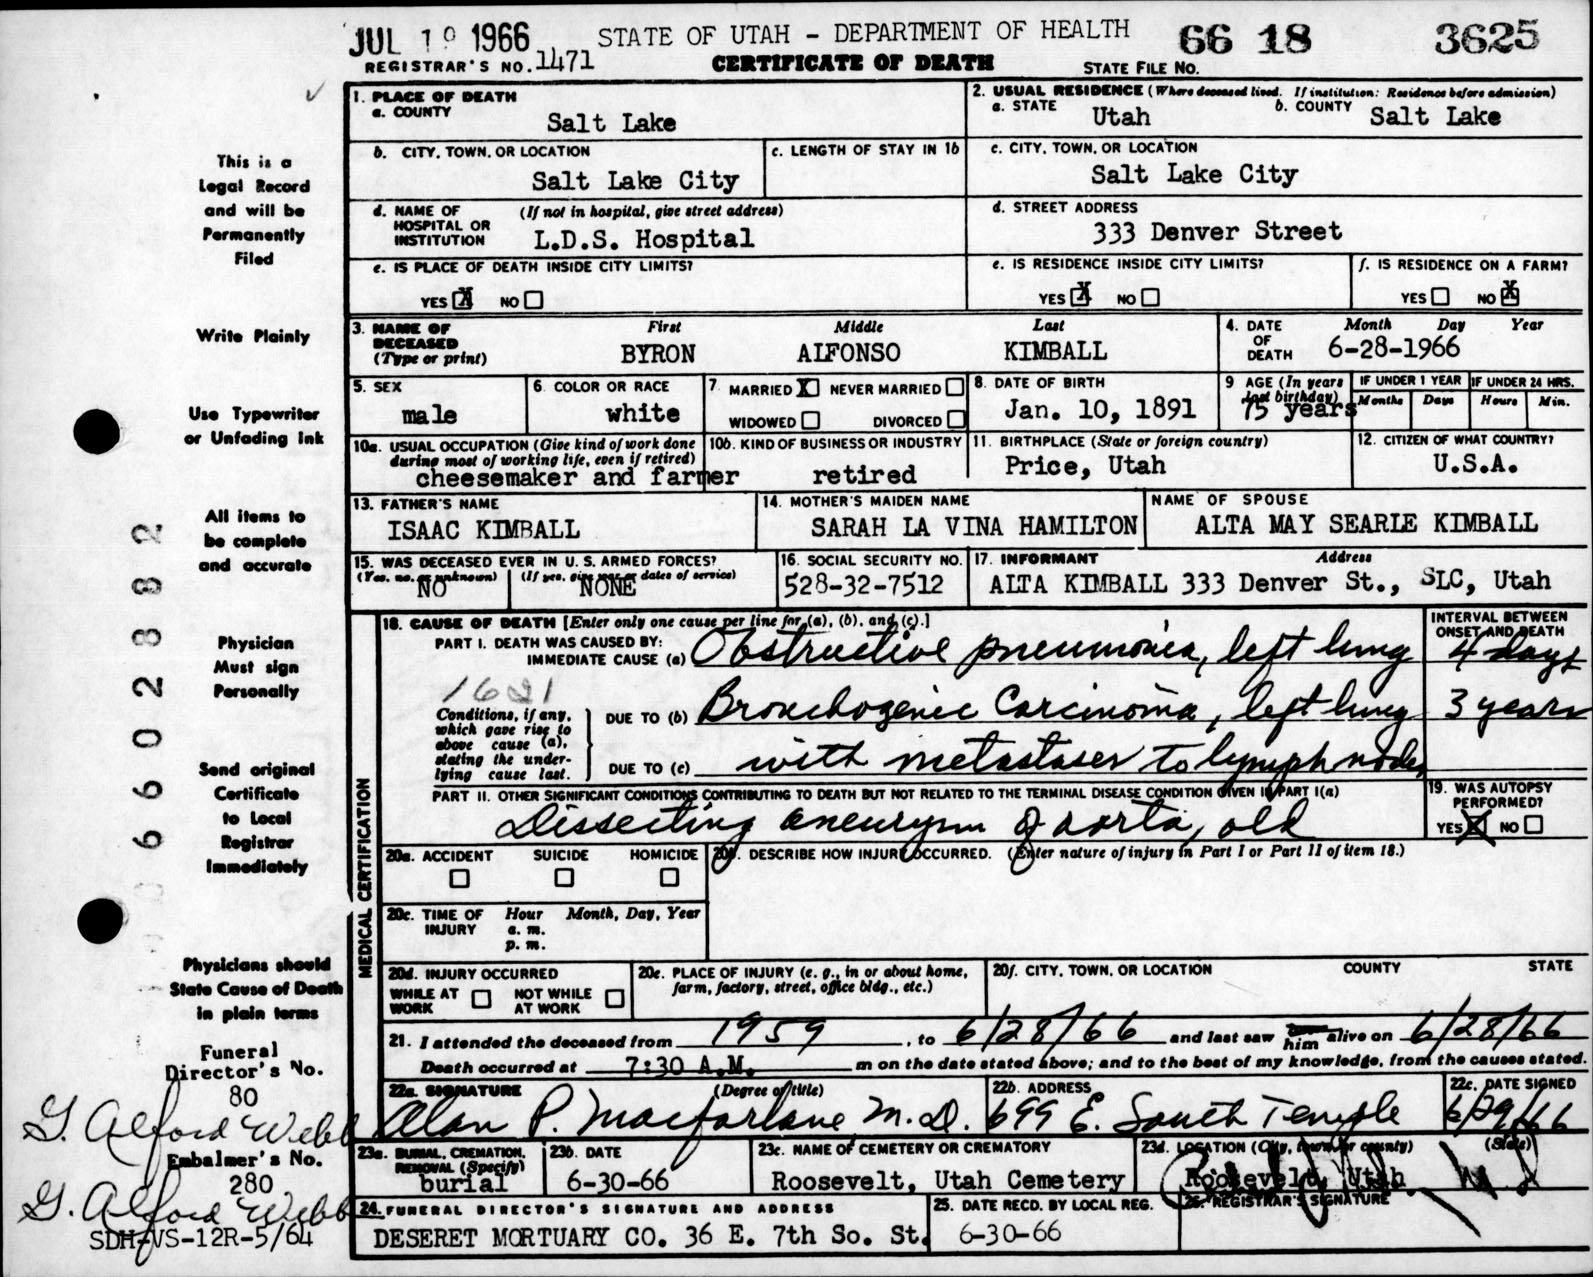 JUL 19 1966 STATE OF UTAH - DEPARTMENT OF HEALTH 66 18 3625
REGISTRAR'S NO. 1471 CERTIFICATE OF DEATH STATE FILE NO.
1. PLACE OF DEATH
a. COUNTY
Salt Lake
2. USUAL RESIDENCE (Where deceased lived. If institution: Residence before admission)
a. STATE Utah b. COUNTY Salt Lake
b. CITY, TOWN, OR LOCATION
Salt Lake City
c. LENGTH OF STAY IN 1b
c. CITY, TOWN, OR LOCATION
Salt Lake City
d. NAME OF HOSPITAL OR INSTITUTION (If not in hospital, give street address)
L.D.S. Hospital
d. STREET ADDRESS
333 Denver Street
e. IS PLACE OF DEATH INSIDE CITY LIMITS?
YES X NO
e. IS RESIDENCE INSIDE CITY LIMITS?
YES X NO
f. IS RESIDENCE ON A FARM?
YES NO X
3. NAME OF DECEASED (Type or print)
First Middle Last
BYRON ALFONSO KIMBALL
4. DATE OF DEATH Month Day Year
6-28-1966
5. SEX
male
6. COLOR OR RACE
white
7. MARRIED X NEVER MARRIED
WIDOWED DIVORCED
8. DATE OF BIRTH
Jan. 10, 1891
9 AGE (In years last birthday)
75 years
IF UNDER 1 YEAR
Months Days
IF UNDER 24 HRS.
Hours Min.
10a. USUAL OCCUPATION (Give kind of work done during most of working life, even if retired)
cheesemaker and farmer
10b. KIND OF BUSINESS OR INDUSTRY
retired
11. BIRTHPLACE (State or foreign country)
Price, Utah
12. CITIZEN OF WHAT COUNTRY?
U.S.A.
13. FATHER'S NAME
ISAAC KIMBALL
14. MOTHER'S MAIDEN NAME
SARAH LA VINA HAMILTON
NAME OF SPOUSE
ALTA MAY SEARLE KIMBALL
15. WAS DECEASED EVER IN U.S. ARMED FORCES?
(Yes, no, or unknown) (If yes, give war or dates of service)
NO NONE
16. SOCIAL SECURITY NO.
528-32-7512
17. INFORMANT Address
ALTA KIMBALL 333 Denver St., SLC, Utah
MEDICAL CERTIFICATION
18. CAUSE OF DEATH [Enter only one cause per line for (a), (b), and (c).]
INTERVAL BETWEEN ONSET AND DEATH
PART I. DEATH WAS CAUSED BY:
IMMEDIATE CAUSE (a) Obstructive pneumonia, left lung 4 days
1621
Conditions, if any, which gave rise to above cause (a), stating the underlying cause last.
DUE TO (b) Bronchogenic Carcinoma, left lung 3 years
DUE TO (c) with metastases to lymph nodes
PART II. OTHER SIGNIFICANT CONDITIONS CONTRIBUTING TO DEATH BUT NOT RELATED TO THE TERMINAL DISEASE CONDITION GIVEN IN PART I(a)
Dissecting aneurysm of aorta, old
19. WAS AUTOPSY PERFORMED?
YES X NO
20a. ACCIDENT SUICIDE HOMICIDE
20b. DESCRIBE HOW INJURY OCCURRED. (Enter nature of injury in Part I or Part II of item 18.)
20c. TIME OF INJURY Hour Month, Day, Year
a. m.
p. m.
20d. INJURY OCCURRED
WHILE AT WORK NOT WHILE AT WORK
20e. PLACE OF INJURY (e. g., in or about home, farm, factory, street, office bldg., etc.)
20f. CITY, TOWN, OR LOCATION COUNTY STATE
21. I attended the deceased from 1959, to 6/28/66 and last saw him alive on 6/28/66
Death occurred at 7:30 A.M. m on the date stated above; and to the best of my knowledge, from the causes stated.
22a. SIGNATURE (Degree or title)
Alan P. Macfarlane M.D.
22b. ADDRESS
699 E. South Temple
22c. DATE SIGNED
6/29/66
23a. BURIAL, CREMATION, REMOVAL (Specify)
burial
23b. DATE
6-30-66
23c. NAME OF CEMETERY OR CREMATORY
Roosevelt, Utah Cemetery
23d. LOCATION (City, town, or county) (State)
Roosevelt, Utah
24. FUNERAL DIRECTOR'S SIGNATURE AND ADDRESS
DESERET MORTUARY CO. 36 E. 7th So. St.
25. DATE RECD. BY LOCAL REG.
6-30-66
26. REGISTRAR'S SIGNATURE
This is a
Legal Record
and will be
Permanently
Filed
Write Plainly
Use Typewriter
or Unfading Ink
All items to
be complete
and accurate
Physician
Must sign
Personally
Send original
Certificate
to Local
Registrar
Immediately
Physicians should
State Cause of Death
in plain terms
Funeral
Director's No.
80
G. Alford Webb
Embalmer's No.
280
G. Alford Webb
SDH-VS-12R-5/64
6602882